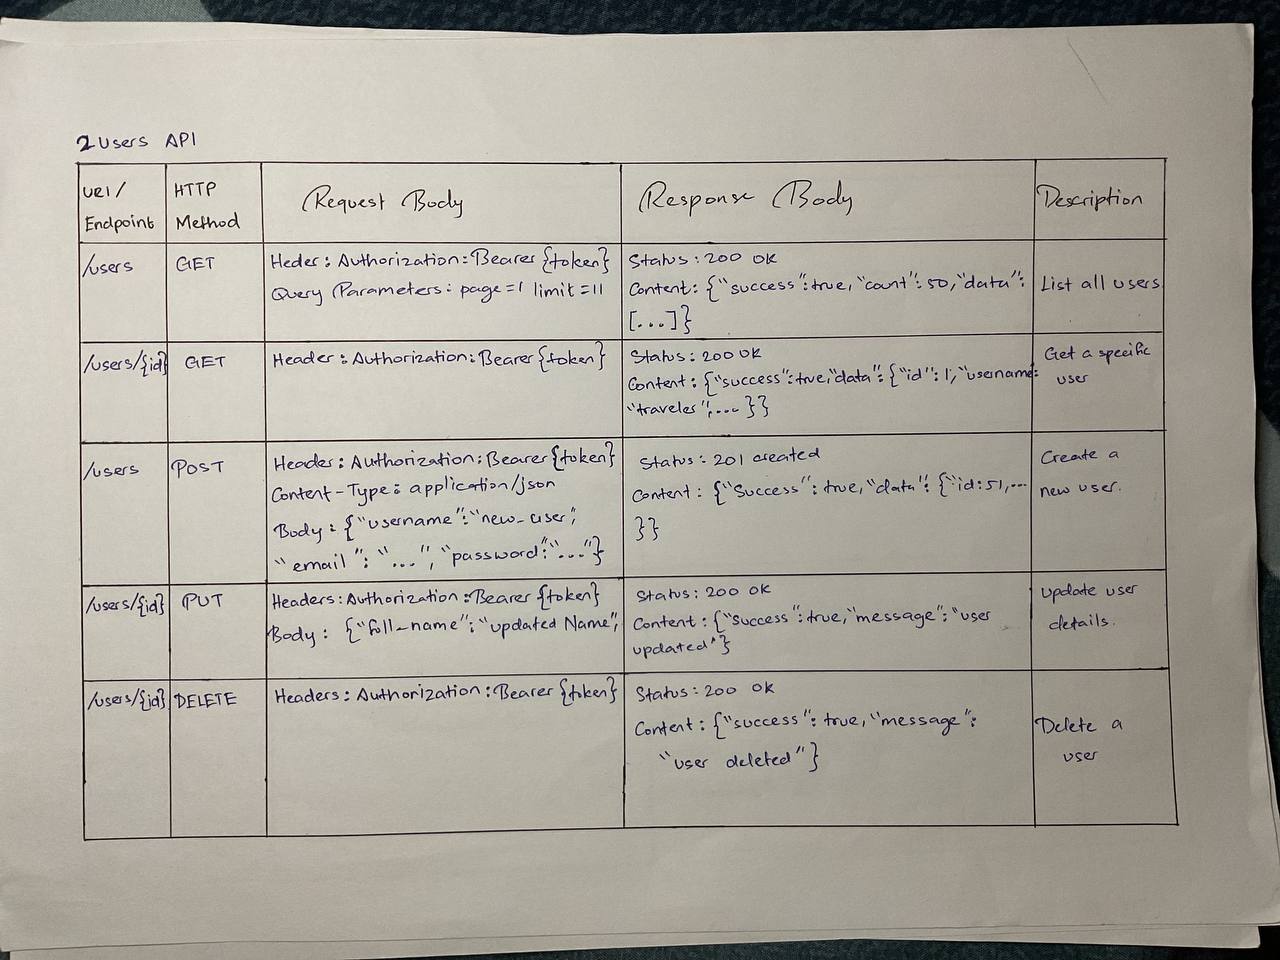 2 Users API
URI/
Endpoint
HTTP
Method
Request Body
Response Body
Description
/users
GET
Heder: Authorization: Bearer {token}
Query Parameters: page=1 limit=11
Status: 200 OK
Content: {"success": true, "count": 50, "data":
[...]}
List all users
/users/{id}
GET
Header: Authorization: Bearer {token}
Status: 200 OK
Content: {"success": true, "data": {"id": 1, "username:
"traveler", ... }}
Get a specific
user
/users
POST
Header: Authorization: Bearer {token}
Content-Type: application/json
Body: {"username": "new_user",
"email": "...", "password": "..."}
Status: 201 created
Content: {"Success": true, "data": {"id: 51, ...
}}
Create a
new user.
/users/{id}
PUT
Headers: Authorization: Bearer {token}
Body: {"full_name": "updated Name",
Status: 200 OK
Content: {"success": true, "message": "user
updated"}
update user
details.
/users/{id}
DELETE
Headers: Authorization: Bearer {token}
Status: 200 OK
Content: {"success": true, "message":
"user deleted"}
Delete a
user